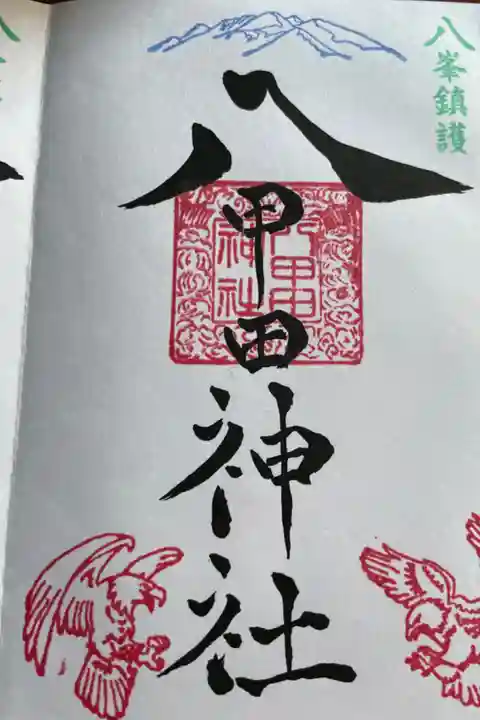 八峯鎮護
八甲田神社
八甲田
神社